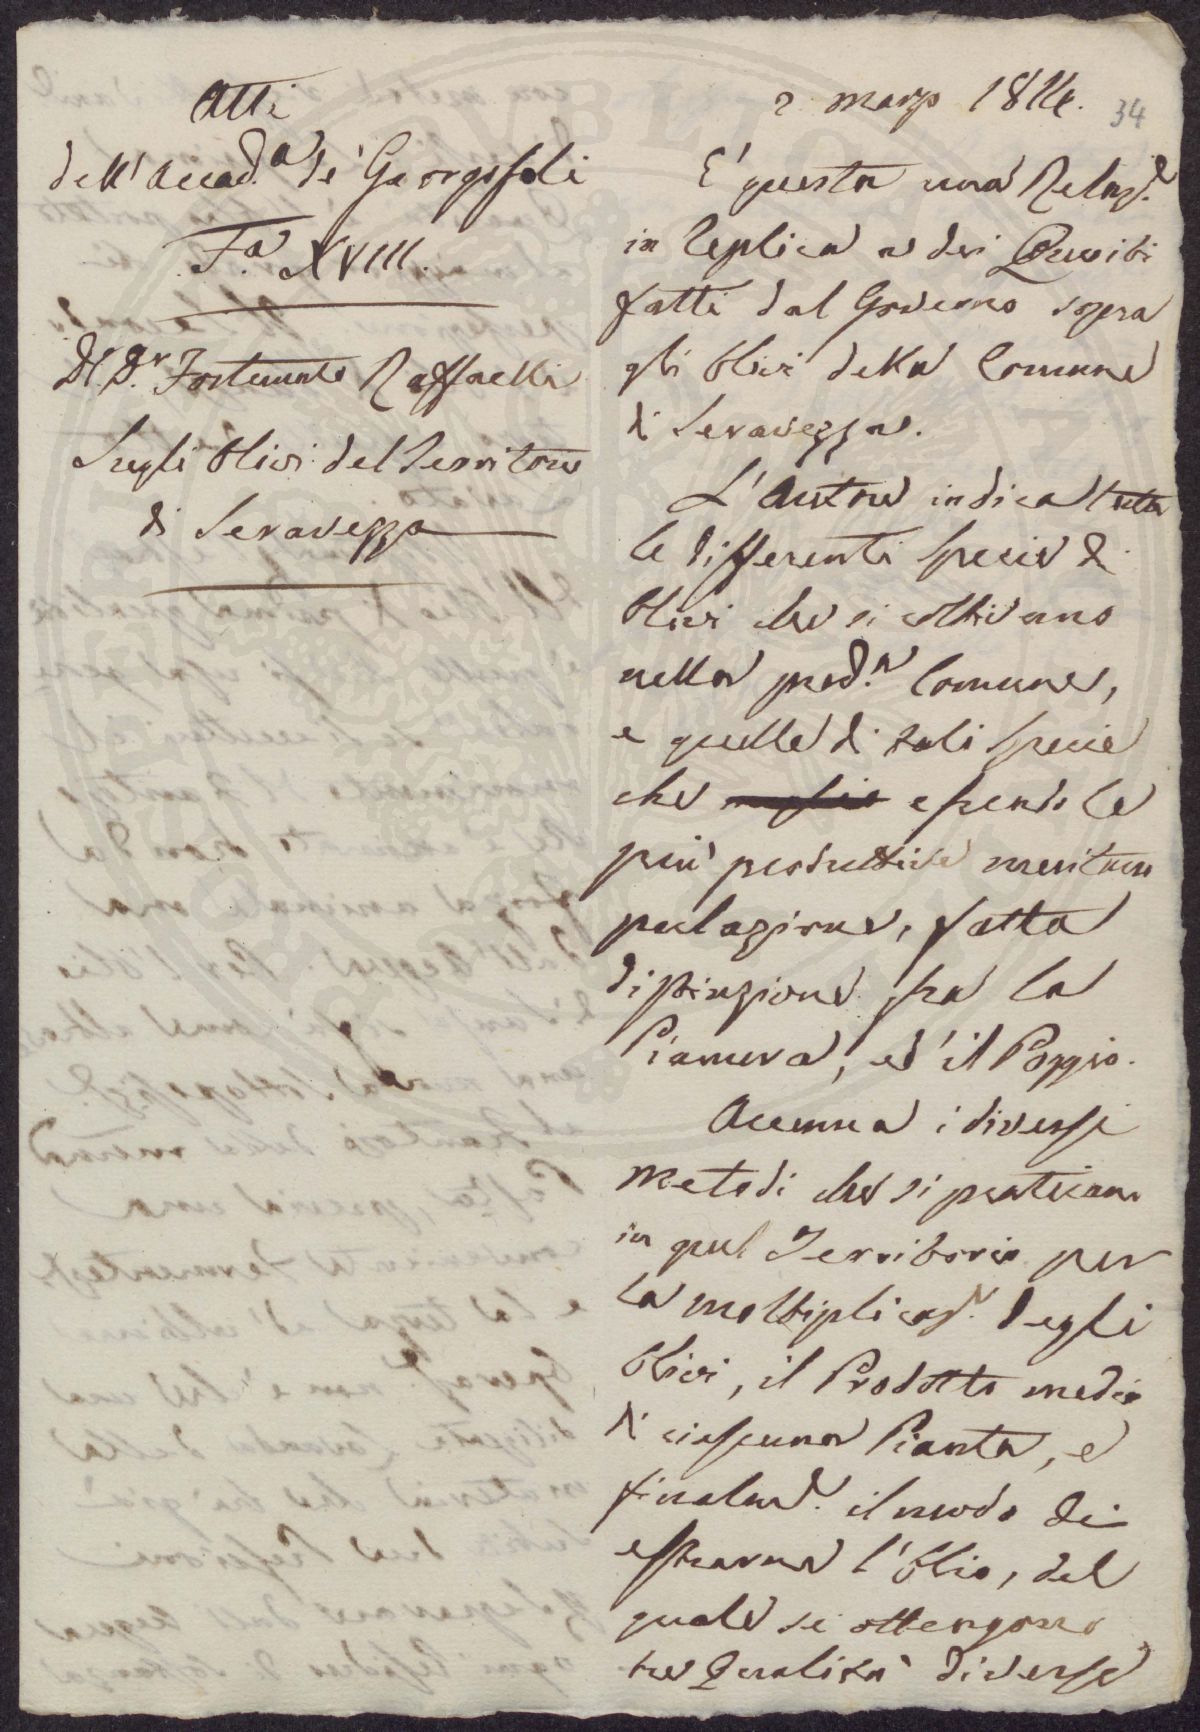 Atti
dell'Accad.a de' Georgofili
F.a XVIII.
Del D.r Fortunato Raffaelli
Sugli Olivi del Territorio
di Seravezza
2 marzo 1814.
34
E' questa una Relaz.e
in replica a dei Quesiti
fatti dal Governo sopra
gli Olivi della Comune
di Seravezza.
L'Autore indica tutte
le differenti Specie di
Olivi che si coltivano
nella pred.a Comune,
e quelle di tali Specie
che essendo le
più produttive meritano
fatta
distinzione fra la
Pianura, ed il Poggio.
Accenna i diversi
metodi che si praticano
in quel Territorio per
la moltiplicaz.e degli
Olivi, il Prodotto medio
di ciascuna Pianta, e
finalm.e il modo di
estrarne l'Olio, del
quale si ottengono
tre Qualità diverse